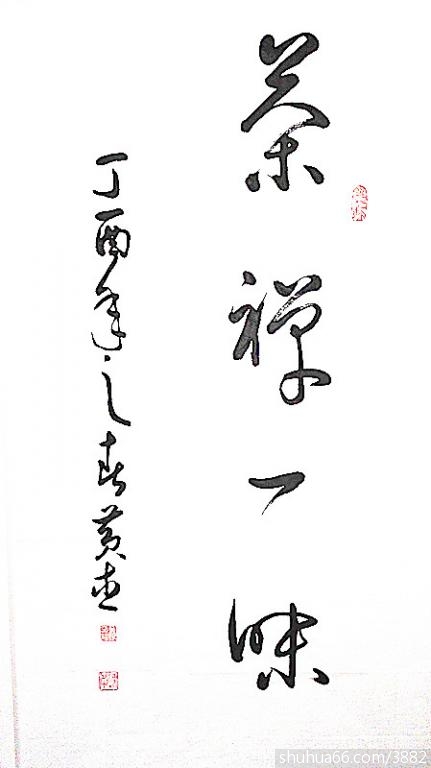 茶禅一味
丁酉年之春黄
shuhua66.com/3882